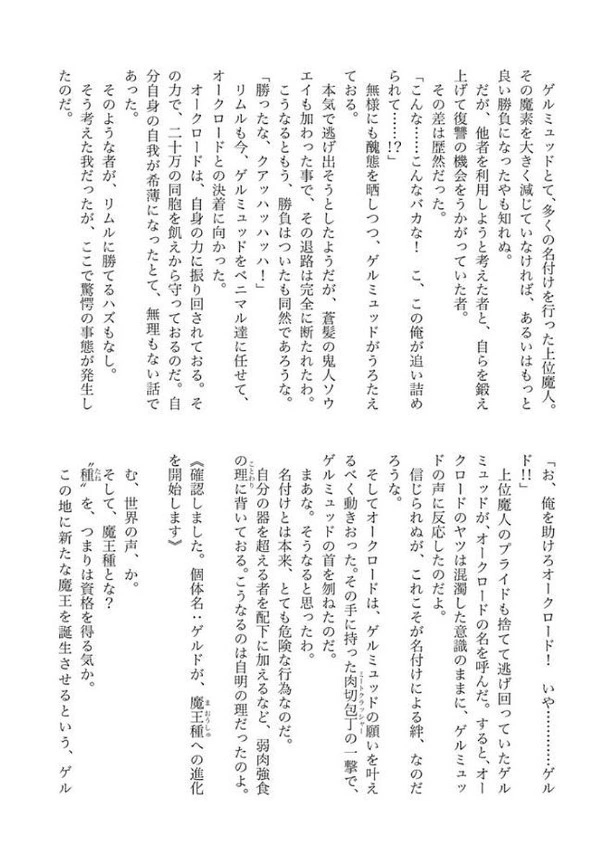 ゲルミュッドとて、多くの名付けを行った上位魔人。
その魔素を大きく減じていなければ、あるいはもっと
良い勝負になったやも知れぬ。
　だが、他者を利用しようと考えた者と、自らを鍛え
上げて復讐の機会をうかがっていた者。
　その差は歴然だった。
「こんな……こんなバカな！　こ、この俺が追い詰め
られて……!?」
　無様にも醜態を晒しつつ、ゲルミュッドがうろたえ
ておる。
　本気で逃げ出そうとしたようだが、蒼髪の鬼人ソウ
エイも加わった事で、その退路は完全に断たれたわ。
　こうなるともう、勝負はついたも同然であろうな。
「勝ったな、クアッハッハッハ！」
　リムルも今、ゲルミュッドをベニマル達に任せて、
オークロードとの決着に向かった。
　オークロードは、自身の力に振り回されておる。そ
の力で、二十万の同胞を飢えから守っておるのだ。自
分自身の自我が希薄になったとて、無理もない話で
あった。
　そのような者が、リムルに勝てるハズもなし。
　そう考えた我だったが、ここで驚愕の事態が発生し
たのだ。
「お、俺を助けろオークロード！　いや…………ゲル
ド!!」
　上位魔人のプライドも捨てて逃げ回っていたゲル
ミュッドが、オークロードの名を呼んだ。すると、オー
クロードのヤツは混濁した意識のままに、ゲルミュッ
ドの声に反応したのだよ。
　信じられぬが、これこそが名付けによる絆、なのだ
ろうな。
　そしてオークロードは、ゲルミュッドの願いを叶え
るべく動きおった。その手に持った肉切包丁ミートクラッシャーの一撃で、
ゲルミュッドの首を刎ねたのだ。
　まあな。そうなると思ったわ。
　名付けとは本来、とても危険な行為なのだ。
　自分の器を超える者を配下に加えるなど、弱肉強食
の理ことわりに背いておる。こうなるのは自明の理だったのよ。
《確認しました。個体名：ゲルドが、魔王種まおうしゅへの進化
を開始します》
　む、世界の声、か。
　そして、魔王種とな？
〝種たね〟を、つまりは資格を得る気か。
　この地に新たな魔王を誕生させるという、ゲル